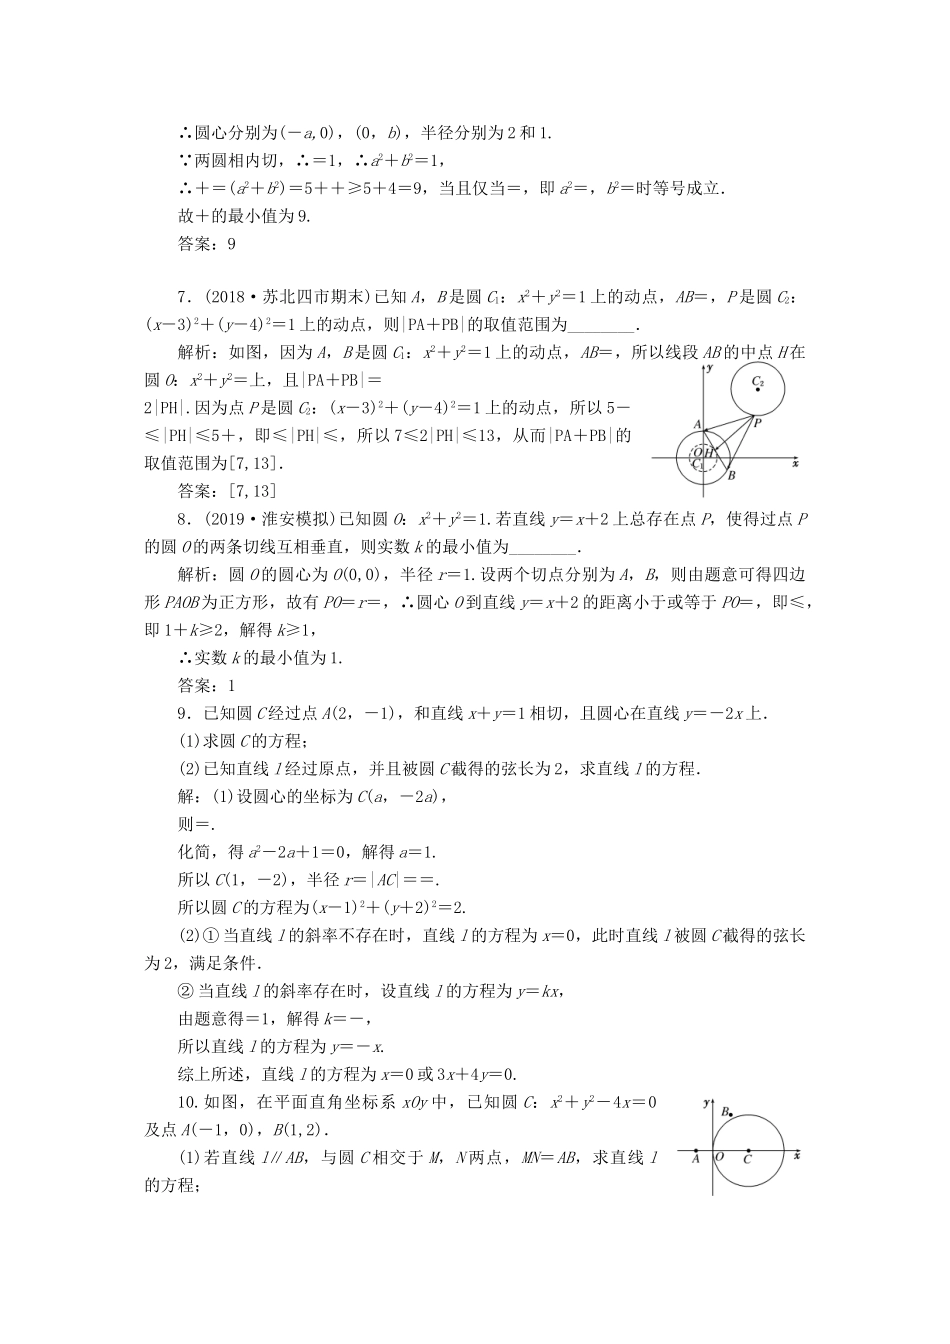 ∴圆心分别为(－a,0)，(0，b)，半径分别为 2 和 1.
∵两圆相内切，∴＝1，∴a²＋b²＝1，
∴＋＝(a²＋b²)＝5＋＋≥5＋4＝9，当且仅当＝，即 a²＝，b²＝时等号成立．
故＋的最小值为 9.
答案：9
7．(2018·苏北四市期末)已知 A，B 是圆 C₁：x²＋y²＝1 上的动点，AB＝，P 是圆 C₂：
(x－3)²＋(y－4)²＝1 上的动点，则|PA＋PB|的取值范围为________．
解析：如图，因为 A，B 是圆 C₁：x²＋y²＝1 上的动点，AB＝，所以线段 AB 的中点 H 在
圆 O：x²＋y²＝上，且|PA＋PB|＝
2|PH|.因为点 P 是圆 C₂：(x－3)²＋(y－4)²＝1 上的动点，所以 5－
≤|PH|≤5＋，即≤|PH|≤，所以 7≤2|PH|≤13，从而|PA＋PB|的
取值范围为[7,13]．
y
C₂
A
P
O
H
C₁
B
x
答案：[7,13]
8．(2019·淮安模拟)已知圆 O：x²＋y²＝1.若直线 y＝x＋2 上总存在点 P，使得过点 P
的圆 O 的两条切线互相垂直，则实数 k 的最小值为________．
解析：圆 O 的圆心为 O(0,0)，半径 r＝1.设两个切点分别为 A，B，则由题意可得四边
形 PAOB 为正方形，故有 PO＝r＝，∴圆心 O 到直线 y＝x＋2 的距离小于或等于 PO＝，即≤，
即 1＋k≥2，解得 k≥1，
∴实数 k 的最小值为 1.
答案：1
9．已知圆 C 经过点 A(2，－1)，和直线 x＋y＝1 相切，且圆心在直线 y＝－2x 上．
(1)求圆 C 的方程；
(2)已知直线 l 经过原点，并且被圆 C 截得的弦长为 2，求直线 l 的方程．
解：(1)设圆心的坐标为 C(a，－2a)，
则＝.
化简，得 a²－2a＋1＝0，解得 a＝1.
所以 C(1，－2)，半径 r＝|AC|＝＝.
所以圆 C 的方程为(x－1)²＋(y＋2)²＝2.
(2)① 当直线 l 的斜率不存在时，直线 l 的方程为 x＝0，此时直线 l 被圆 C 截得的弦长
为 2，满足条件．
② 当直线 l 的斜率存在时，设直线 l 的方程为 y＝kx，
由题意得＝1，解得 k＝－，
所以直线 l 的方程为 y＝－x.
综上所述，直线 l 的方程为 x＝0 或 3x＋4y＝0.
10.如图，在平面直角坐标系 xOy 中，已知圆 C：x²＋y²－4x＝0
及点 A(－1，0)，B(1,2)．
(1)若直线 l∥AB，与圆 C 相交于 M，N 两点，MN＝AB，求直线 l
的方程；
y
B
A
O
C
x